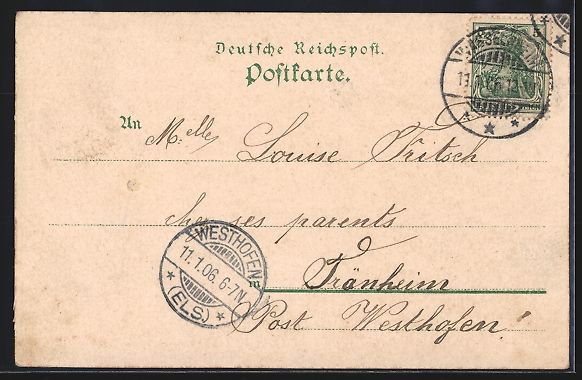 Deutsche Reichspost.
Postkarte.
5
An
M.elle Louise Fritsch
chez ses parents
Tränheim
Post Westhofen!
WESTHOFEN
11.1.06. 6-7N.
* (ELS.) *